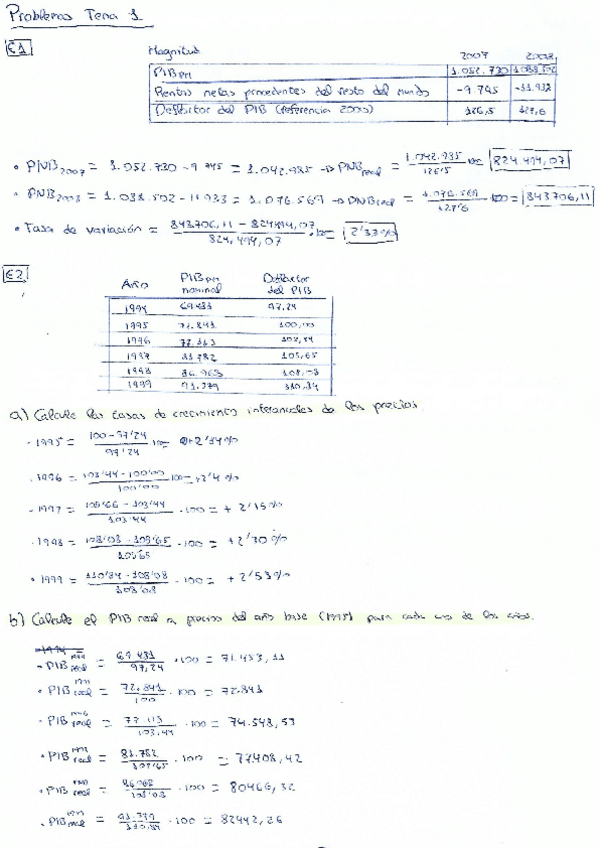 Problemas Tema 1
E1
Magnitud 2007 2008
PIBpm 1.052.730 1.088.502
Rentas netas procedentes del resto del mundo -9.745 -11.933
Deflactor del PIB (referencia 2000) 126,5 127,6
• PNB2007 = 1.052.730 - 9.745 = 1.042.985 → PNBreal = 1.042.985 / 126'5 · 100 = 824.494,07
• PNB2008 = 1.088.502 - 11.933 = 1.076.569 → PNBreal = 1.076.569 / 127'6 · 100 = 843706,11
• Tasa de variación = 843706,11 - 824494,07 / 824.494,07 · 100 = 2'33%
E2
Año PIBpm nominal Deflactor del PIB
1994 69.431 97,24
1995 72.841 100,00
1996 77.113
1997 81.782 105,65
1998 108,08
1999 110,84
a) Calcule las tasas de crecimiento interanuales de los precios.
· 1995 = 100 - 97'24 / 97'24 · 100 = 2'84%
· 1996 = 103'44 - 100'00 / 100'00 · 100 =
- 1997 = 103'44 / 103'44 · 100 = + 2'15%
· 1998 = 108'08 - 105'65 / 105'65 · 100 = +2'30%
• 1999 = 110'84 - 108'08 / 108'08 · 100 = +2'53%
b) Calcule el PIB real a precios del año base (1995) para cada uno de los años.
- PIB real = 69.431 / 97,24 · 100 = 71.433,11
• PIB real = 72.841 / 100 · 100 = 72.841
· PIB real = 77.113 / 103,44 · 100 = 74.548,53
• PIB real = 81.782 / 105'65 · 100 = 77408,42
• PIB real = / 108'08 · 100 = 80466,32
• PIB real = / 110,84 · 100 = 82442,26